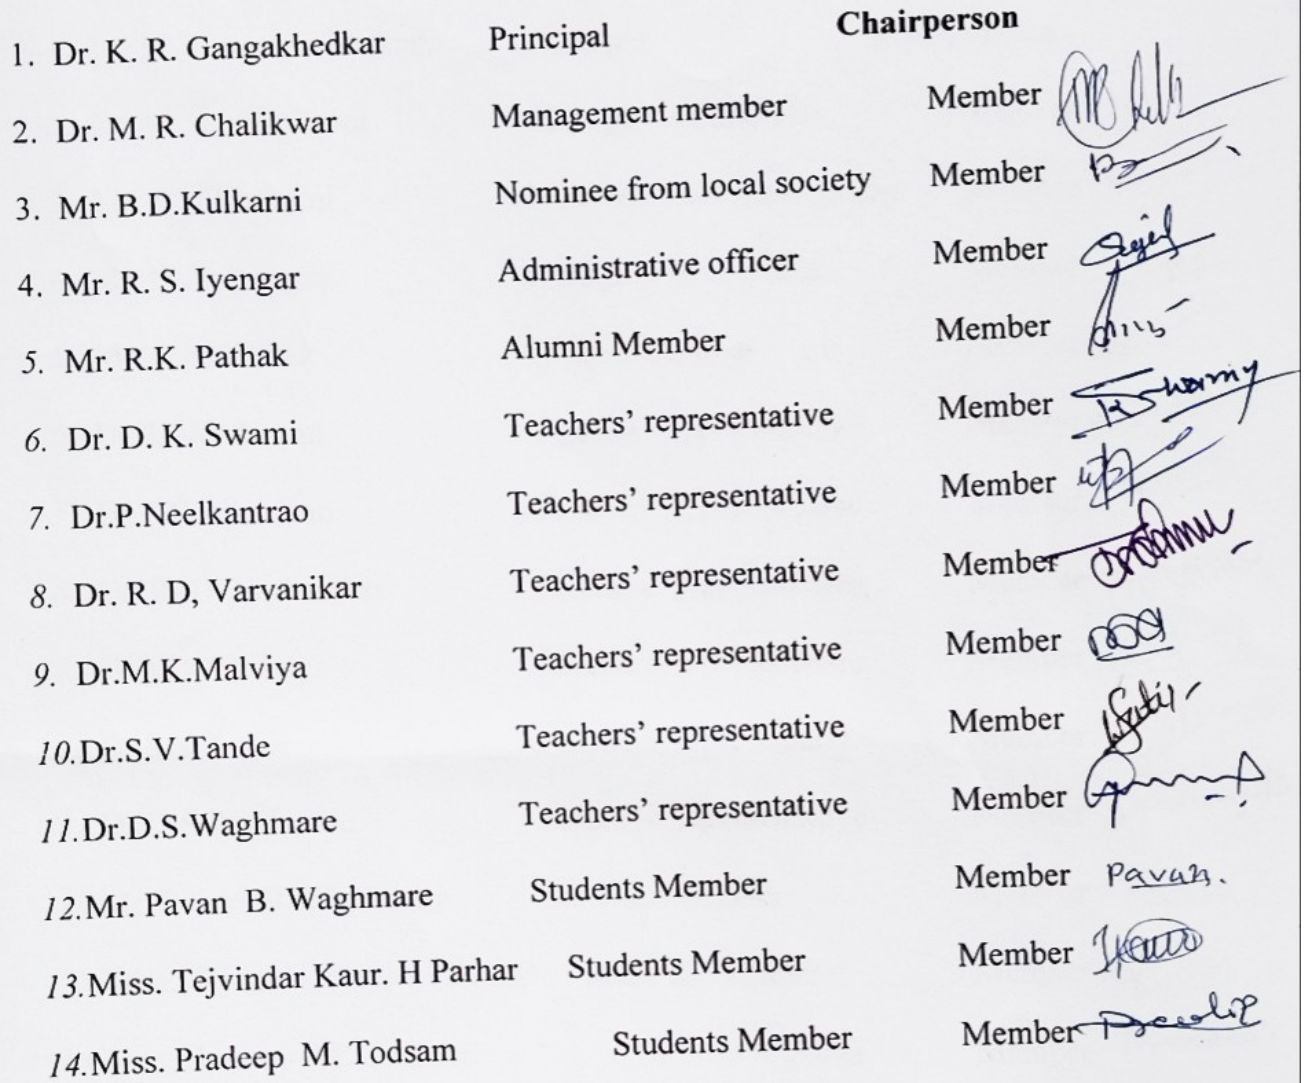 1. Dr. K. R. Gangakhedkar Principal Chairperson
2. Dr. M. R. Chalikwar Management member Member
3. Mr. B.D.Kulkarni Nominee from local society Member
4. Mr. R. S. Iyengar Administrative officer Member
5. Mr. R.K. Pathak Alumni Member Member
6. Dr. D. K. Swami Teachers’ representative Member
7. Dr.P.Neelkantrao Teachers’ representative Member
8. Dr. R. D, Varvanikar Teachers’ representative Member
9. Dr.M.K.Malviya Teachers’ representative Member
10.Dr.S.V.Tande Teachers’ representative Member
11.Dr.D.S.Waghmare Teachers’ representative Member
12.Mr. Pavan B. Waghmare Students Member Member Pavan.
13.Miss. Tejvindar Kaur. H Parhar Students Member Member
14.Miss. Pradeep M. Todsam Students Member Member